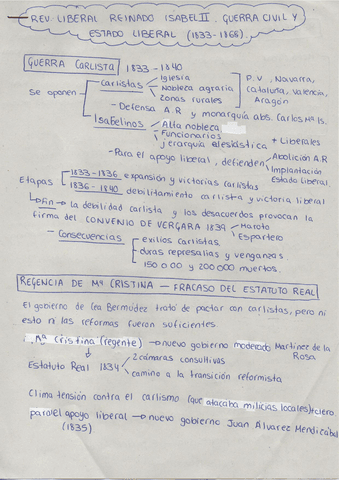 REV. LIBERAL REINADO ISABEL II. GUERRA CIVIL Y
ESTADO LIBERAL (1833-1868)
GUERRA CARLISTA 1833-1840
Se oponen
Carlistas
Iglesia
Nobleza agraria
Zonas rurales
P.V, Navarra,
Cataluña, Valencia,
Aragón
- Defensa A.R y monarquía abs. Carlos Mª Is.
Isabelinos
Alta nobleza
Funcionarios
jerarquía eclesiástica
+ Liberales
- Para el apoyo liberal, defienden
Abolición A.R
Implantación
Estado liberal
Etapas
1833-1836 expansión y victorias carlistas
1836-1840. debilitamiento carlista y victoria liberal
Fin → la debilidad carlista y los desacuerdos provocan la
firma del CONVENIO DE VERGARA 1839
Maroto
Espartero
- Consecuencias
exilios carlistas
duras represalias y venganzas
150000 y 200000 muertos.
REGENCIA DE Mª CRISTINA - FRACASO DEL ESTATUTO REAL
El gobierno de Cea Bermúdez trató de pactar con carlistas, pero ni
esto ni las reformas fueron suficientes.
Mª Cristina (regente) → nuevo gobierno moderado Martínez de la
Rosa
Estatuto Real 1834
2 cámaras consultivas
camino a la transición reformista
Clima tensión contra el carlismo (que atacaba milicias locales)+clero
para el apoyo liberal → nuevo gobierno Juan Álvarez Mendizábal
(1835)